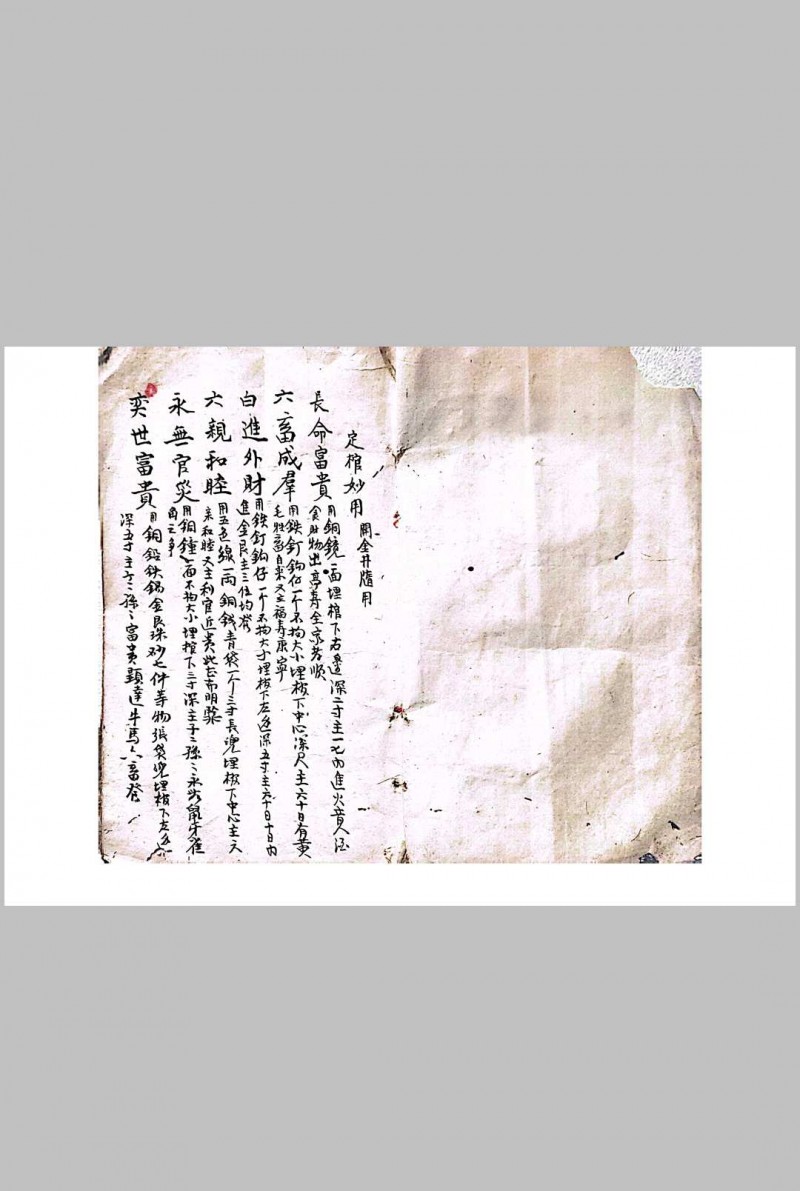 定棺妙用 開金井隨用
長命富貴 用銅鏡一面埋棺下右邊深二寸主一七內進火音人酒
食財物出亭壽全家芳順
六畜成羣 用鉄釘鈎仔一个不拘大小埋棺下中心深尺主六十日有黄
毛牲畜自来又主福寿康寧
白進外財 用鉄釘鈎仔一个不拘大小埋棺下左邊深五寸主六十日十日內
進金艮主三位均發
六親和睦 用五色線一両銅銭青袋一个三寸長兜埋棺下中心主六
親和睦又主利官近貴
永無官災 用銅鐘一面不拘大小埋棺下三寸深主子〻孫〻永無鼠牙雀
角之争
奕世富貴 用銅鉛鉄錫金艮珠砂七件等物張袋兜埋棺下左邊
深五寸主子〻孫〻富貴顕達牛馬六畜發